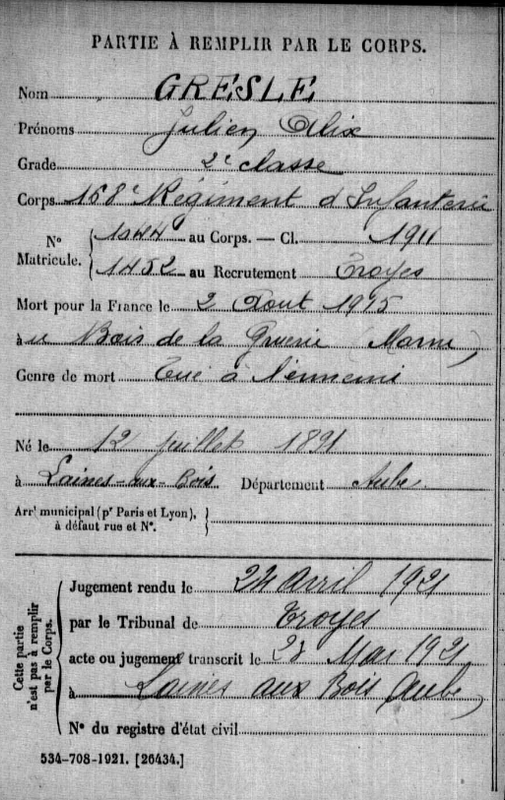 PARTIE À REMPLIR PAR LE CORPS.
Nom GRESLE
Prénoms Julien Alix
Grade 2e classe
Corps 168e Régiment d'Infanterie
N° Matricule. 1044 au Corps. — Cl. 1911
1452 au Recrutement Troyes
Mort pour la France le 2 Août 1915
à u Bois de la Gruerie (Marne)
Genre de mort Tué à l'ennemi
Né le 12 juillet 1891
à Laines-aux-Bois Département Aube
Arrt municipal (pr Paris et Lyon),
à défaut rue et N°.
Cette partie n'est pas à remplir par le Corps.
Jugement rendu le 24 Avril 1921
par le Tribunal de Troyes
acte ou jugement transcrit le Mai 1921
à Laines aux Bois Aube)
N° du registre d'état civil
534-708-1921. [26434.]